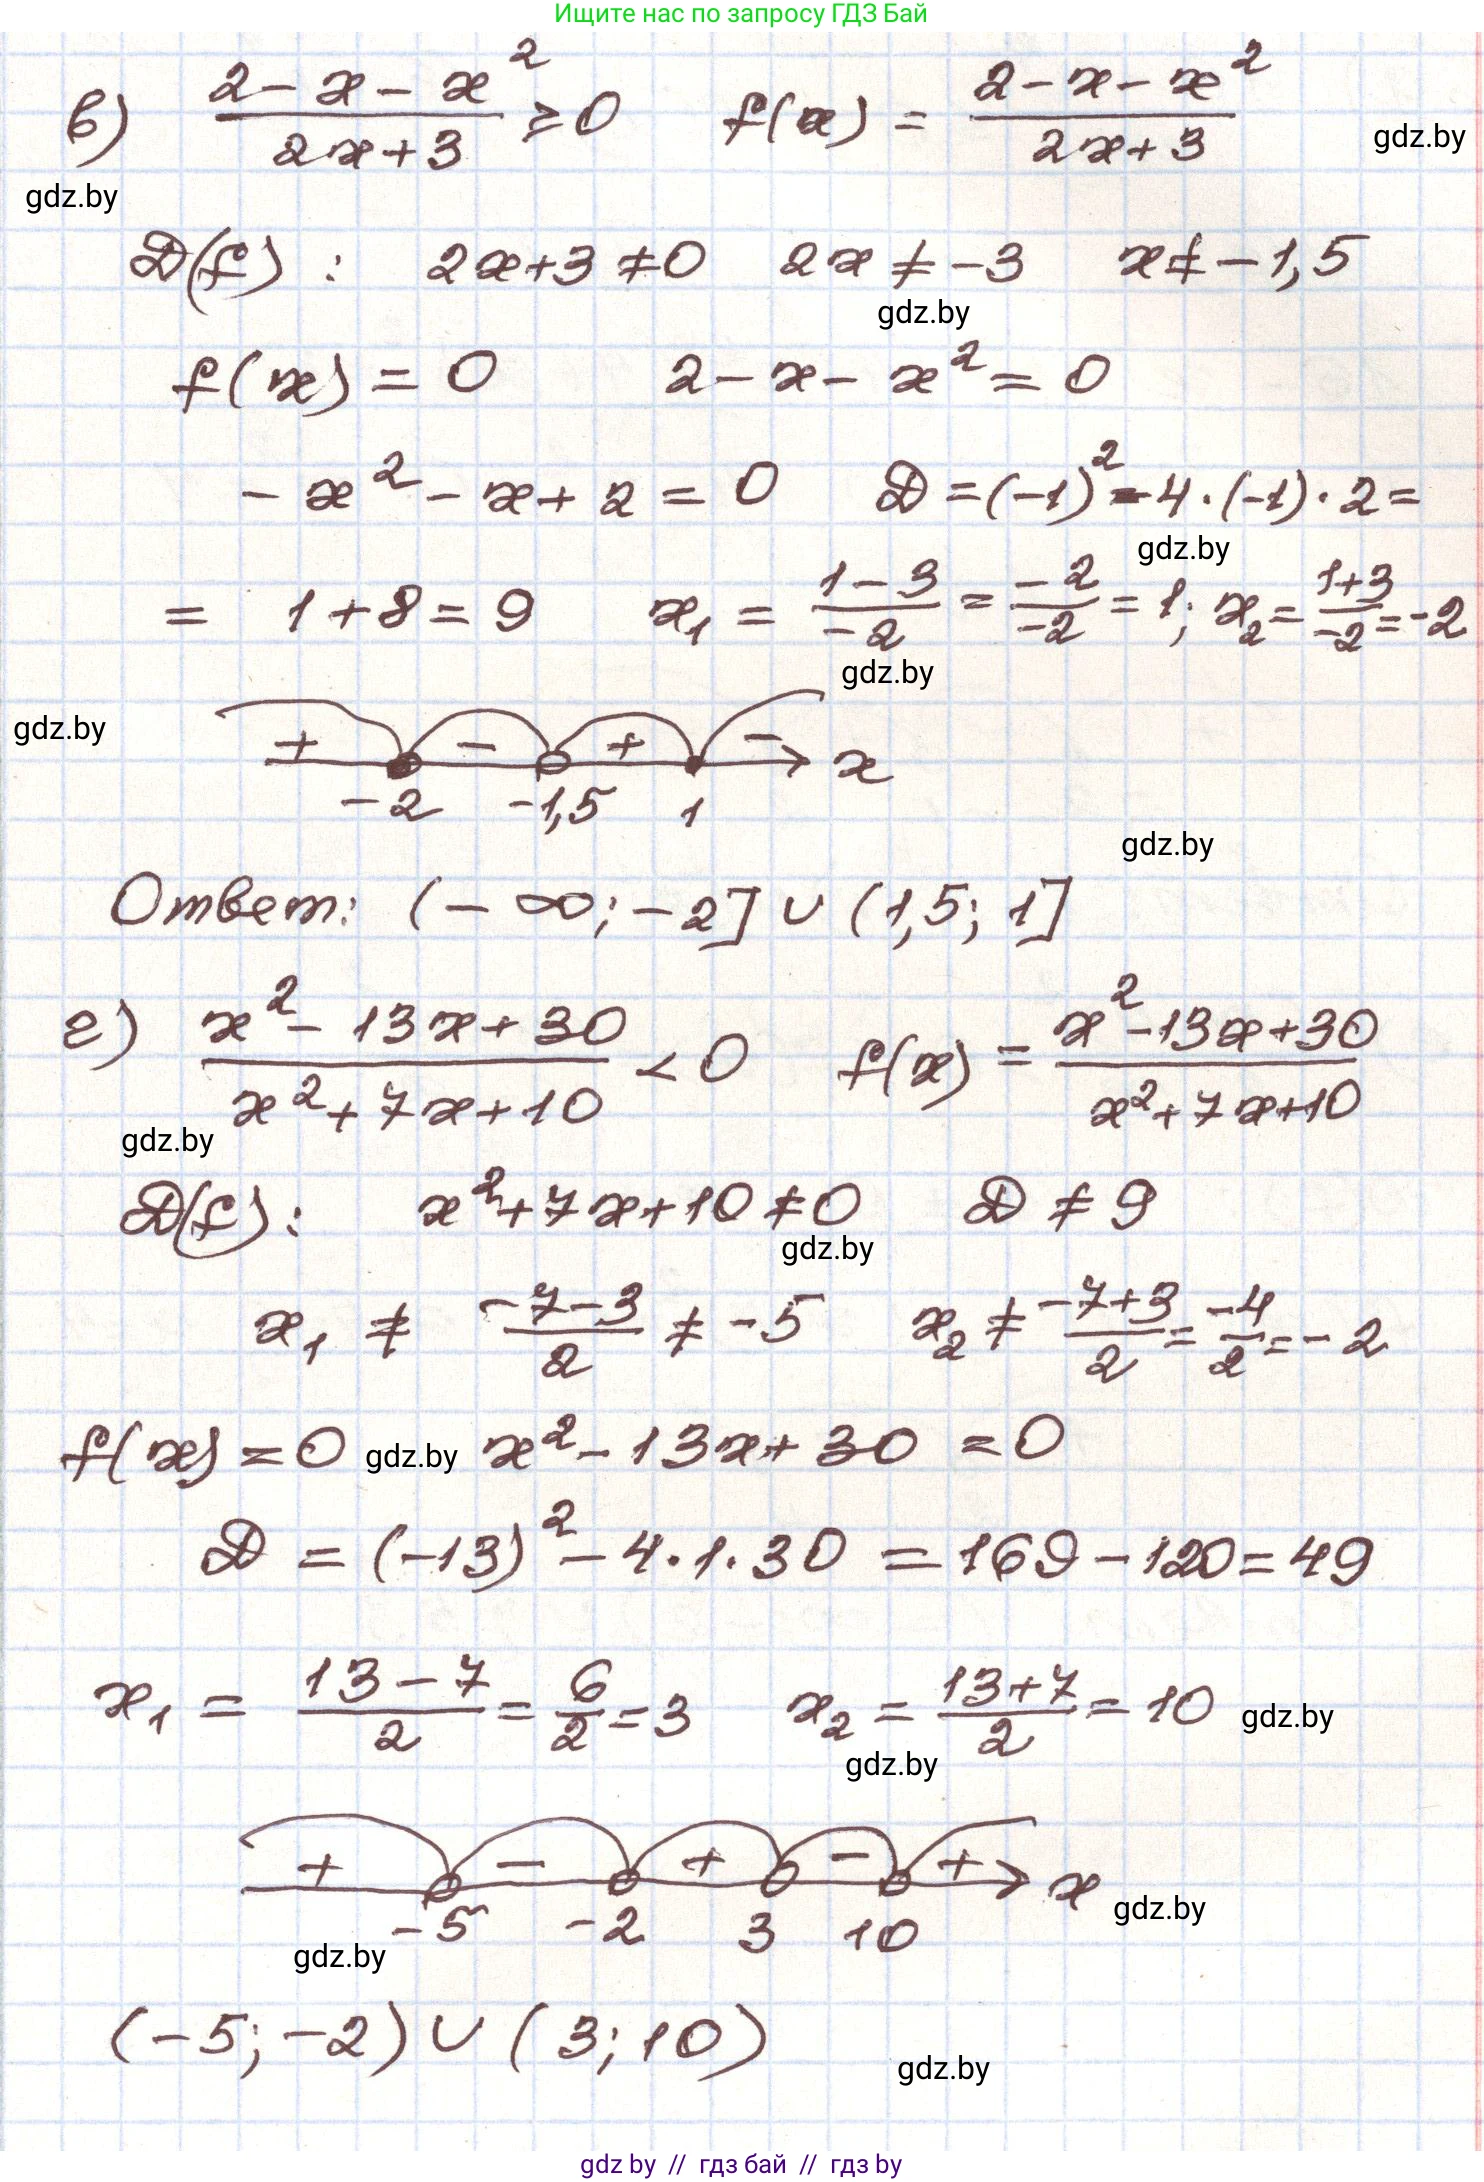 Ищите нас по запросу ГДЗ Бай
в) (2 - x - x²)/(2x+3) ≥ 0 f(x) = (2 - x - x²)/(2x+3)
gdz.by
gdz.by
D(f) : 2x+3 ≠ 0 2x ≠ -3 x ≠ -1,5
gdz.by
f(x) = 0 2 - x - x² = 0
-x² - x + 2 = 0 D = (-1)² - 4·(-1)·2 =
gdz.by
= 1 + 8 = 9 x₁ = (1-3)/(-2) = (-2)/(-2) = 1; x₂ = (1+3)/(-2) = -2
gdz.by
gdz.by
+ - + - x
-2 -1,5 1
gdz.by
Ответ: (-∞; -2] ∪ (1,5; 1]
г) (x² - 13x + 30)/(x² + 7x + 10) < 0 f(x) = (x² - 13x + 30)/(x² + 7x + 10)
gdz.by
D(f) : x² + 7x + 10 ≠ 0 D ≠ 9
gdz.by
x₁ ≠ (-7-3)/2 ≠ -5 x₂ ≠ (-7+3)/2 = -4/2 = -2
f(x) = 0 gdz.by x² - 13x + 30 = 0
D = (-13)² - 4·1·30 = 169 - 120 = 49
x₁ = (13-7)/2 = 6/2 = 3 x₂ = (13+7)/2 = 10 gdz.by
gdz.by
+ - + - + x gdz.by
-5 -2 3 10
gdz.by
(-5; -2) ∪ (3; 10)
gdz.by
gdz by // гдз бай // гдз by